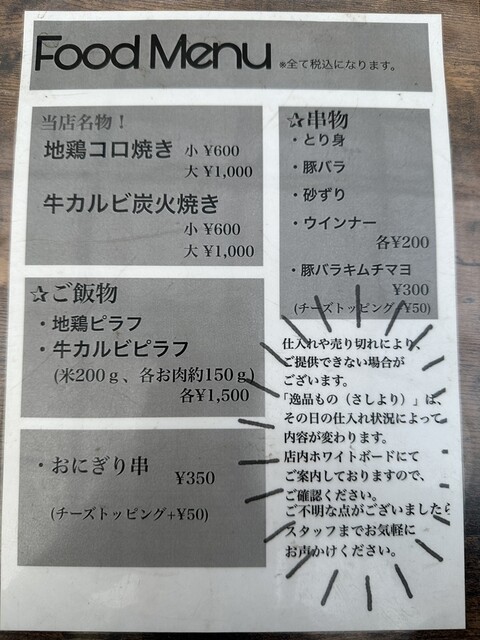 Food Menu ※全て税込になります。
当店名物！
地鶏コロ焼き 小 ¥600
大 ¥1,000
牛カルビ炭火焼き
小 ¥600
大 ¥1,000
☆ご飯物
・地鶏ピラフ
・牛カルビピラフ
(米200ｇ、各お肉約150ｇ)
各¥1,500
・おにぎり串 ¥350
(チーズトッピング+¥50)
☆串物
・とり身
・豚バラ
・砂ずり
・ウインナー
各¥200
・豚バラキムチマヨ
¥300
(チーズトッピング+¥50)
仕入れや売り切れにより、
ご提供できない場合が
ございます。
「逸品もの（さしより）」は、
その日の仕入れ状況によって
内容が変わります。
店内ホワイトボードにて
ご案内しておりますので、
ご確認ください。
ご不明な点がございましたら
スタッフまでお気軽に
お声かけください。